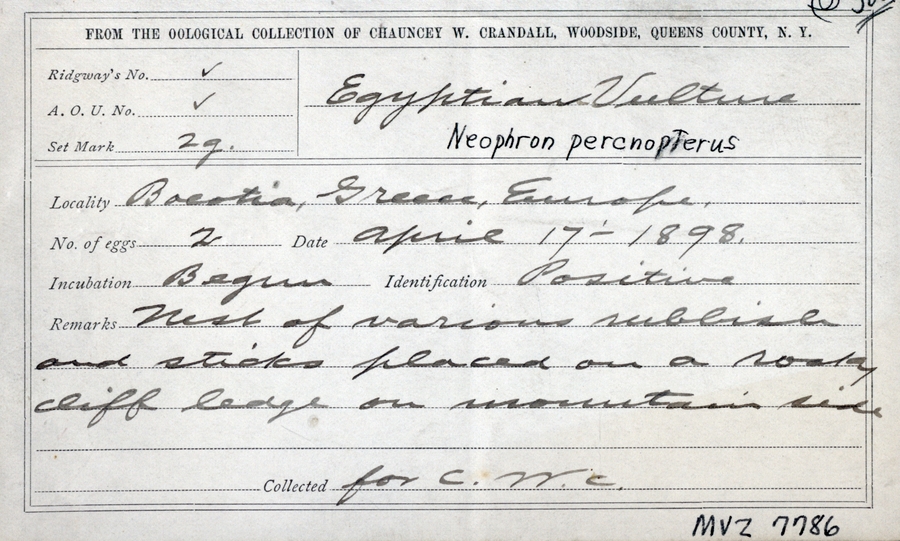 FROM THE OOLOGICAL COLLECTION OF CHAUNCEY W. CRANDALL, WOODSIDE, QUEENS COUNTY, N. Y.
Ridgway's No. ✓
A. O. U. No. ✓
Set Mark 2g.
Egyptian Vulture
Neophron percnopterus
Locality Boeotia, Greece, Europe.
No. of eggs 2 Date April 17 - 1898.
Incubation Begun Identification Positive
Remarks Nest of various rubbish
and sticks placed on a rocky
cliff ledge on mountain side
Collected for C. W. C.
MVZ 7786